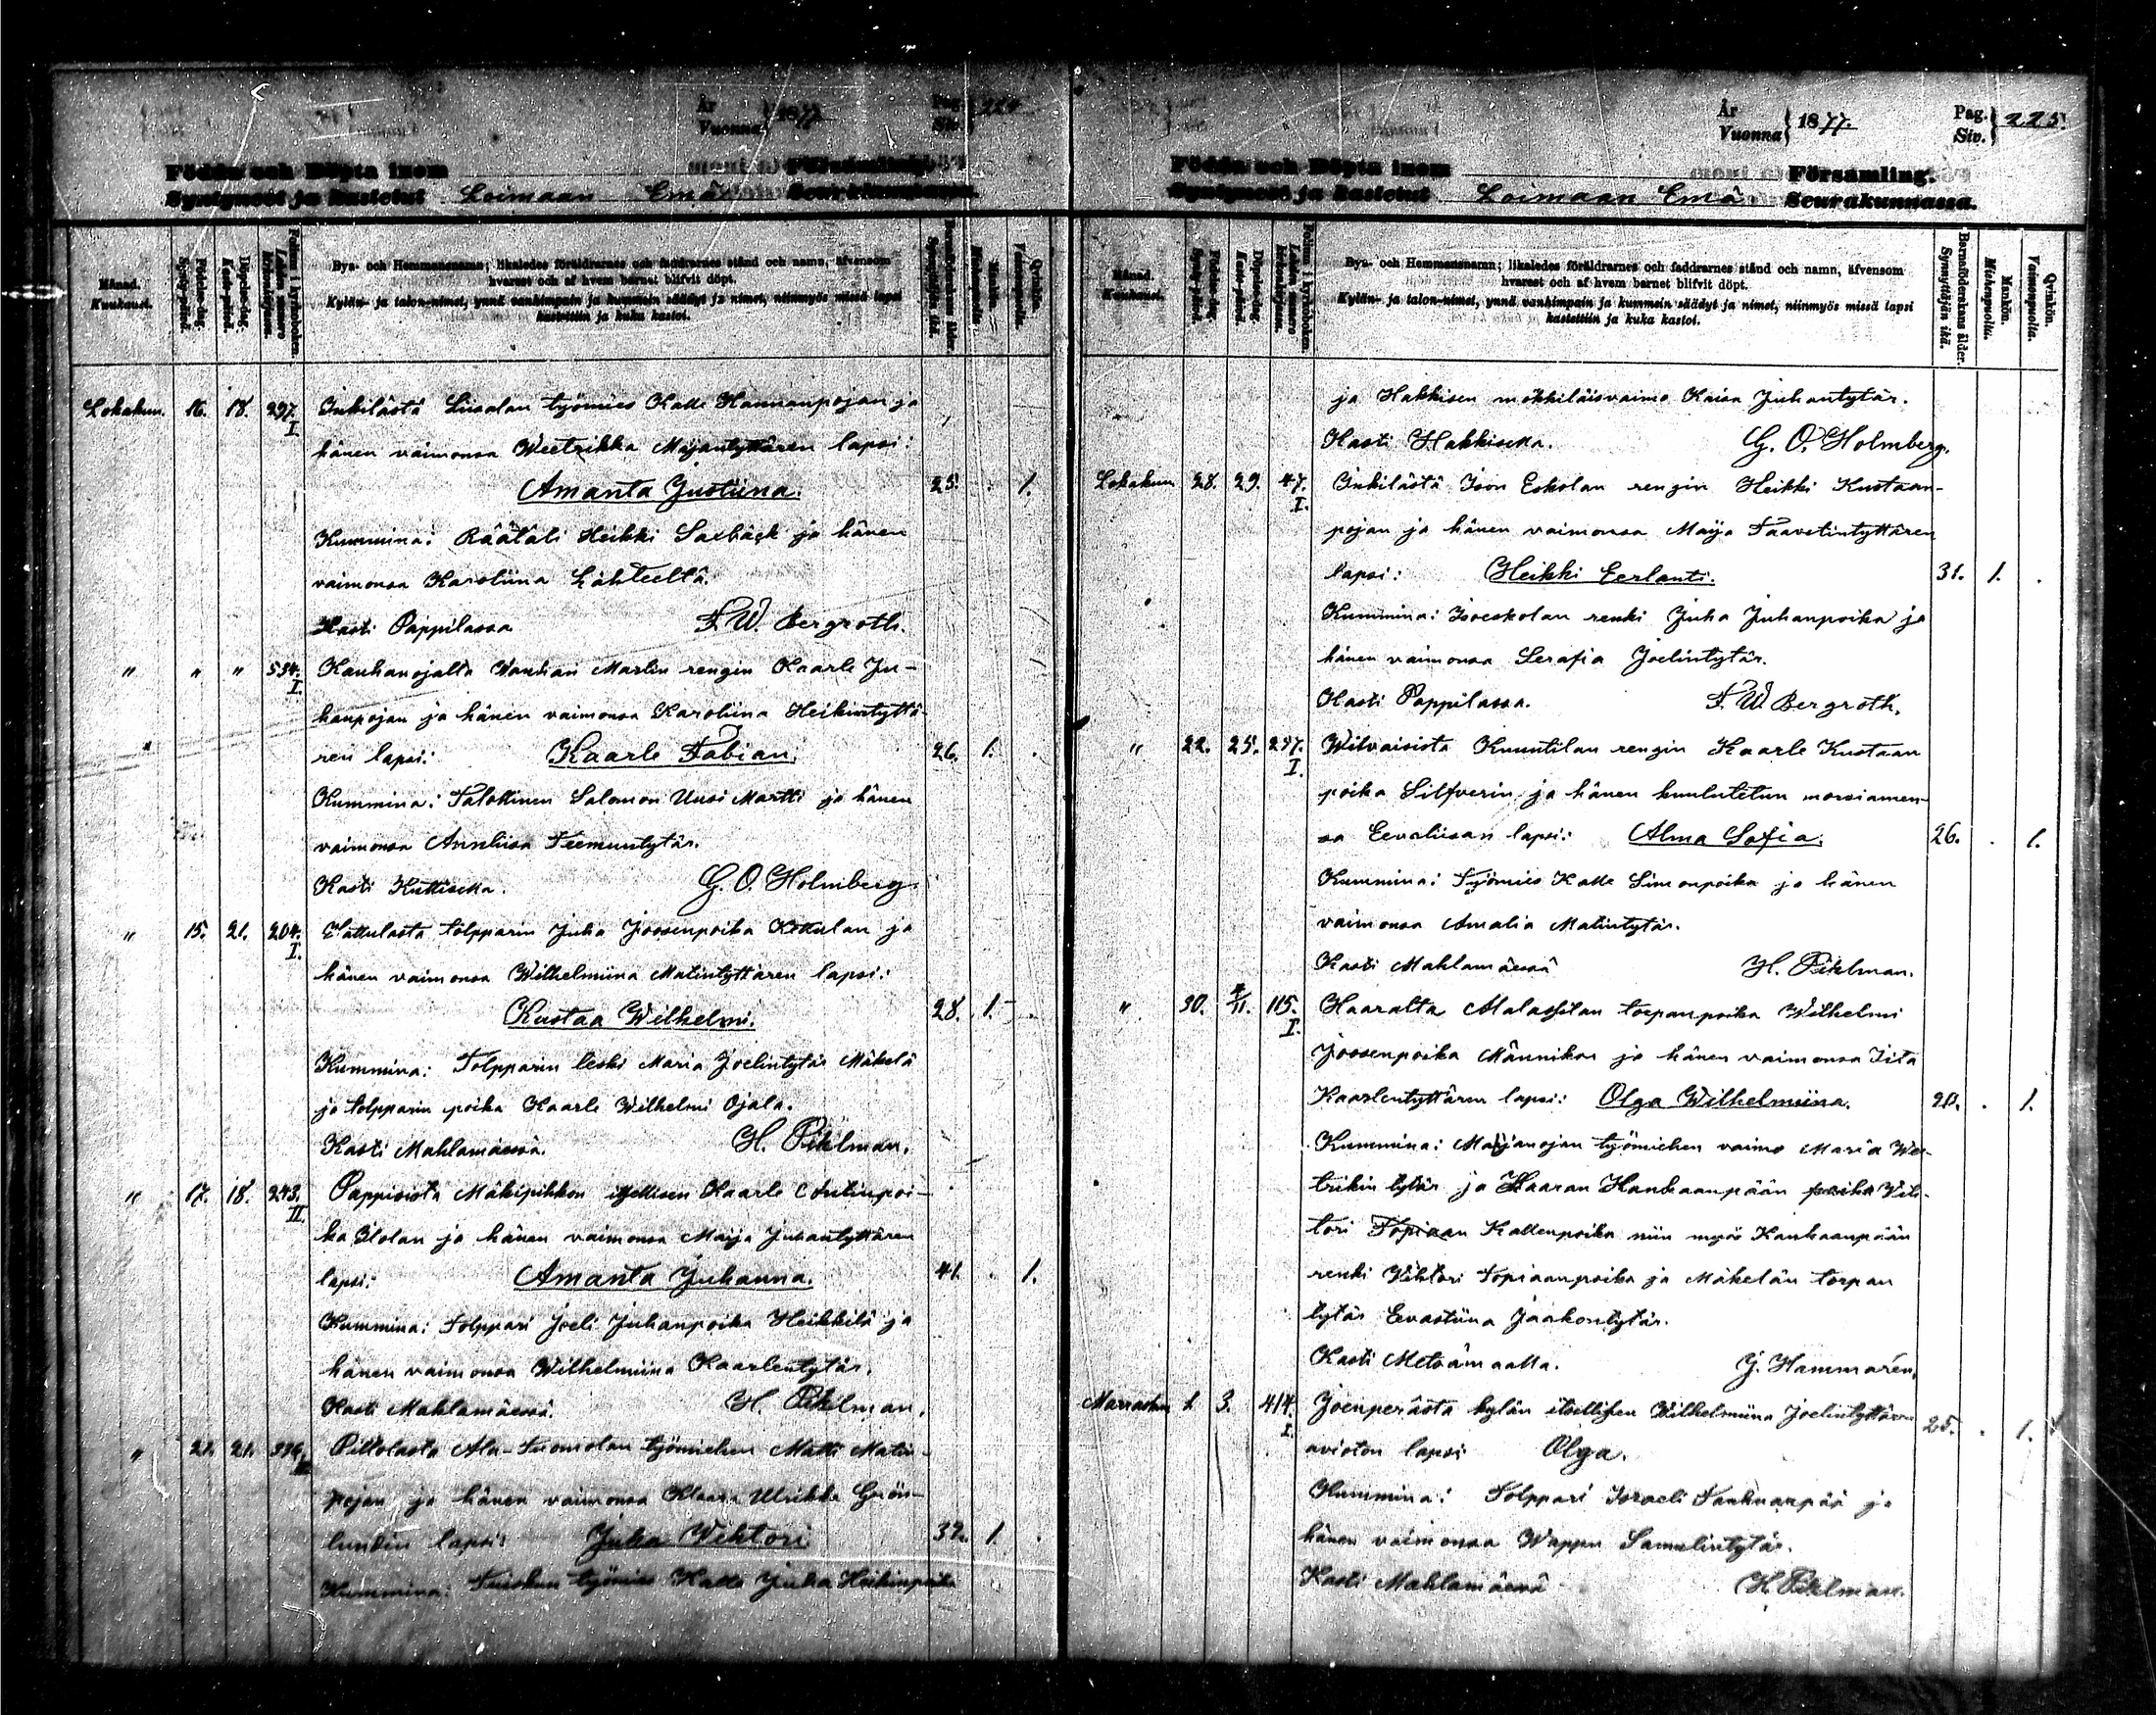 År
Vuonna } 1877
Pag.
Siv. } 224
Födda och Döpta inom
Syntyneet ja kastetut Loimaan Emä Församling.
Seurakunnassa.
Månad.
Kuukausi.
Födelse-dag.
Synty-päivä.
Döpelse-dag.
Kaste-päivä.
Folium i kyrkoboken.
Lehden numero kirkonkirjassa.
Bya- och Hemmansnamn; likaledes föräldrarnes och faddrarnes stånd och namn, äfvensom
hvarest och af hvem barnet blifvit döpt.
Kylän- ja talon-nimet, ynnä vanhimpain ja kummein säädyt ja nimet, niinmyös missä lapsi
kastettiin ja kuka kastoi.
Barnaföderskans ålder.
Synnyttäjän ikä.
Mankön.
Miehenpuolia.
Qvinkön.
Vaimonpuolia.
Lokakuu. 16. 18. 297. I Inkilästä Liisalan työmies Kalle Hannanpojan ja
hänen vaimonsa Weetrikka Maijantyttären lapsi:
Amanta Justiina. 25. 1.
Kummina: Räätäli Heikki Saxbäck ja hänen
vaimonsa Karoliina Lähteeltä.
Kasti Pappilassa F. W. Bergroth.
" " " 534. I. Kauhanojalta Wanhan Martin rengin Kaarle Ju-
hanpojan ja hänen vaimonsa Karoliina Heikintyttä-
ren lapsi: Kaarle Fabian. 26. 1.
Kummina: Talollinen Salomon Uusi Martti ja hänen
vaimonsa Annliisa Teemuntytär.
Kasti G. O. Holmberg.
" 15. 21. 204. I. tolpparin Juha Joosenpoika Kottulan ja
hänen vaimonsa Wilhelmiina Matintyttären lapsi:
Kustaa Wilhelmi. 28. 1.
Kummina: Tolpparin leski Maria Joelintytär Mäkelä
ja tolpparin poika Kaarle Wilhelmi Ojala.
Kasti Mahlamäessä. H. Pihlman.
" 17. 18. 243. II. Pappisista Mäkipihkon itsellisen Kaarle Antinpoi-
ka Ilolan ja hänen vaimonsa Maija Juhantyttären
lapsi: Amanta Juhanna. 41. 1.
Kummina: Tolppari Joeli Juhanpoika Heikkilä ja
hänen vaimonsa Wilhelmiina Kaarlentytär.
Kasti Mahlamäessä. H. Pihlman.
" 21. 21. Ala-Tuomolan työmiehen Matti Matin-
pojan ja hänen vaimonsa Klaara Ulrikka Grön-
lundin lapsi: Juha Wihtori 32. 1.
Kummina: työmies Kalle Juha Heikinpoika
År
Vuonna } 1877.
Pag.
Siv. } 225.
Födda och Döpta inom
Syntyneet ja kastetut Loimaan Emä Församling.
Seurakunnassa.
Månad.
Kuukausi.
Födelse-dag.
Synty-päivä.
Döpelse-dag.
Kaste-päivä.
Folium i kyrkoboken.
Lehden numero kirkonkirjassa.
Bya- och Hemmansnamn; likaledes föräldrarnes och faddrarnes stånd och namn, äfvensom
hvarest och af hvem barnet blifvit döpt.
Kylän- ja talon-nimet, ynnä vanhimpain ja kummein säädyt ja nimet, niinmyös missä lapsi
kastettiin ja kuka kastoi.
Barnaföderskans ålder.
Synnyttäjän ikä.
Mankön.
Miehenpuolia.
Qvinkön.
Vaimonpuolia.
ja Hakkisen mökkiläisvaimo Kaisa Juhantytär.
Kasti Hakkisella. G. O. Holmberg.
Lokakuu 28. 29. 47. I. Inkilästä Ison Eskolan rengin Heikki Kustaan-
pojan ja hänen vaimonsa Maija Taavetintyttären
lapsi: Heikki Eerlanti. 31. 1.
Kummina: Isoeskolan renki Juha Juhanpoika ja
hänen vaimonsa Serafia Joelintytär.
Kasti Pappilassa. F. W. Bergroth.
" 22. 25. 257. I. Wilvaisista Kuuntilan rengin Kaarle Kustaan
poika Silfverin ja hänen kuulutetun morsiamen-
sa Eevaliisan lapsi: Alma Sofia. 26. 1.
Kummina: Työmies Kalle Simonpoika ja hänen
vaimonsa Amalia Matintytär.
Kasti Mahlamäessä H. Pihlman.
" 30. 4/11. 115. I. Haaralta torpanpoika Wilhelmi
Joosenpoika Männikön ja hänen vaimonsa Iita
Kaarlentyttären lapsi: Olga Wilhelmiina. 20. 1.
Kummina: Marjanojan työmiehen vaimo Maria Wee-
trikin tytär ja Haaran Hanhaanpään poika Wih-
tori Topiaan Kallenpoika niin myös Kanhaanpään
renki Wihtori Topiaanpoika ja Mäkelän torpan
tytär Eevastiina Jaakontytär.
Kasti Metsämaalla. J. Hammarén.
Marraskuu 1. 3. 414. I. Joenperästä kylän itsellisen Wilhelmiina Joelintyttären
avioton lapsi Olga. 25. 1.
Kummina: Tolppari Israeli Tanhuanpää ja
hänen vaimonsa Wappu Samulintytär.
Kasti Mahlamäessä H. Pihlman.